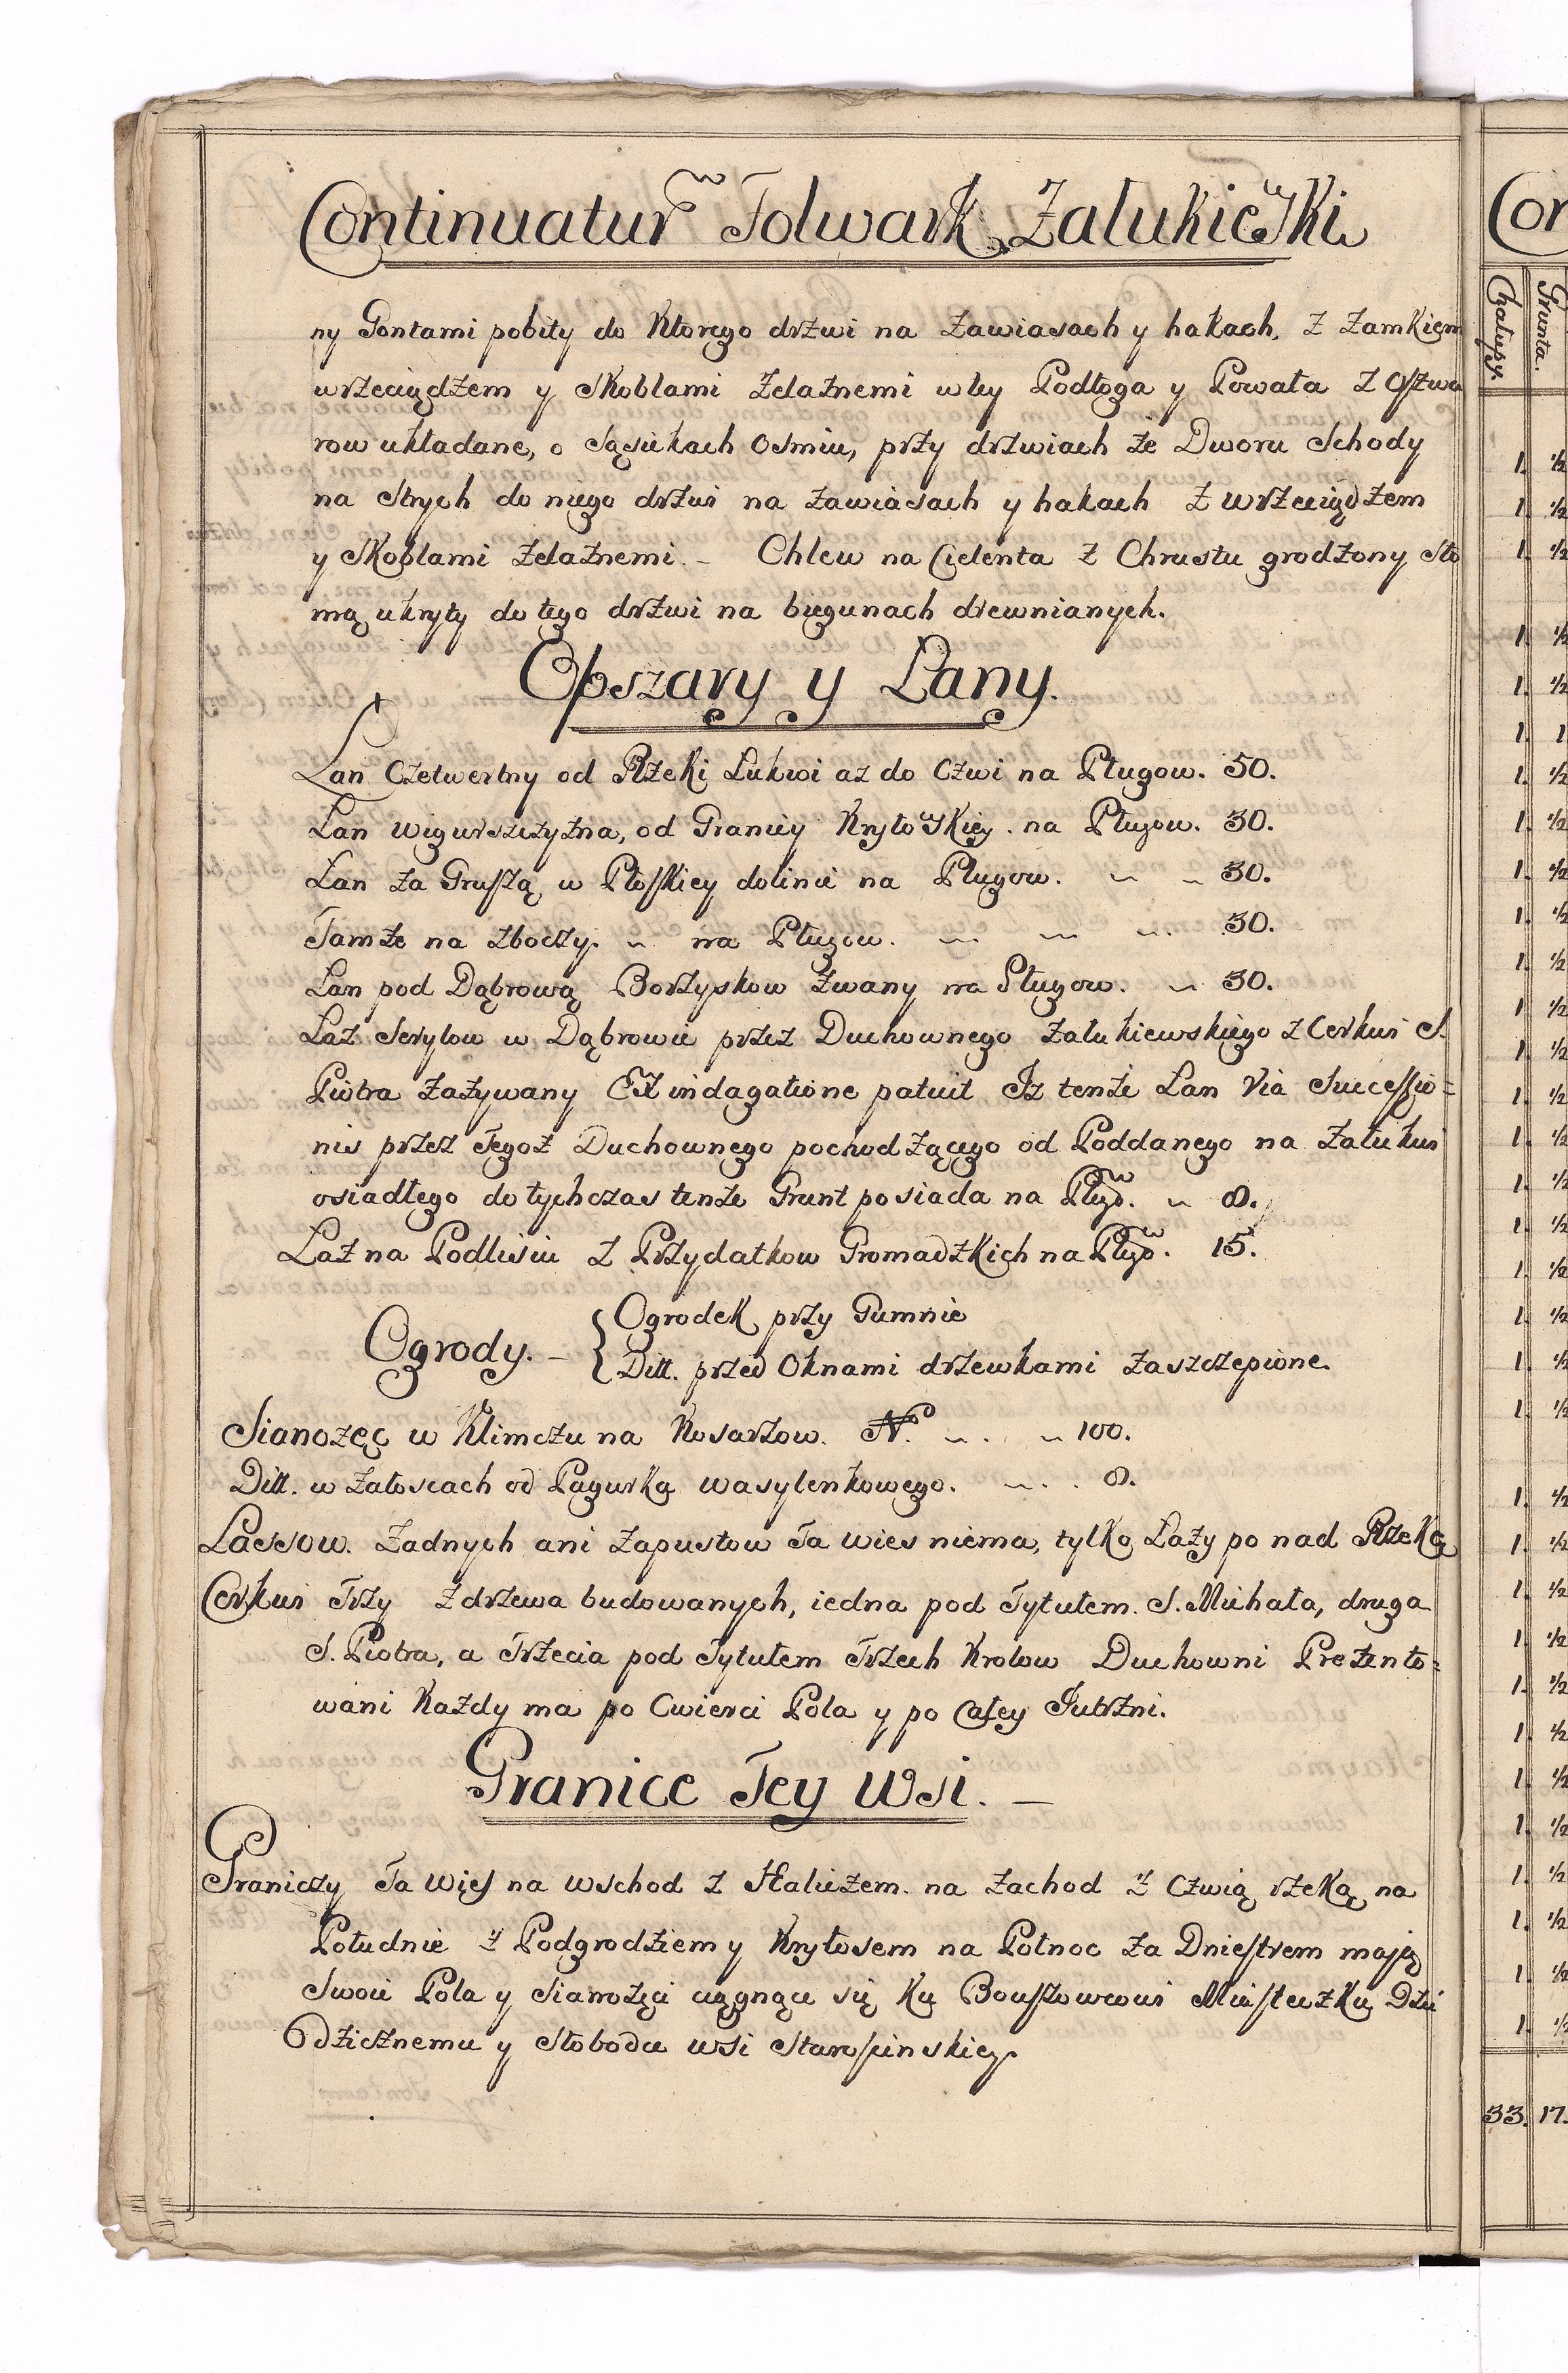 Continuatur Folwark Załukiewski
ny Gontami pobity do Ktorego drzwi na Zawiasach y hakach, z Zamkiem
wrzeciądzem y Skoblami Zelaznemi w tey Podłoga y Powała z Oszwa
row układane, o Sąsiekach Osmiu, przy drzwiach ze Dworu Schody
na Strych do niego drzwi na Zawiasach y hakach z wrzeciądzem
y Skoblami Zelaznemi. – Chlew na Cielenta z Chrustu grodzony Sło
mą ukryty do tego drzwi na biegunach drewnianych.
Obszary y Łany.
Łan Czetwertny od Rzeki Łukwi az do Czwi na Pługow. 50.
Łan Wigurszczyzna, od Granicy Kryłoskiey na Pługow. 30.
Łan za Gruszą w Płoskiey dolinie na Pługow. 30.
Tamze na Zboczy na Pługow. 30.
Łan pod Dąbrową Borzyskow Zwany na Pługow. 30.
Łaz Serylow w Dąbrowie przez Duchownego Załukiewskiego z Cerkwi S.
Piotra Zazywany Ex indagatione patuit Iz tenze Łan Via Successio=
nis przez Tegoz Duchownego pochodzącego od Poddanego na Załukwi
osiadłego dotychczas tenze Grunt posiada na Pługow. 8.
Łaz na Podlisiu z Przydatkow Gromadzkich na Pługow. 15.
Ogrody. – { Ogrodek przy Gumnie
Ditt. przed Oknami drzewkami Zaszczepione
Sianozęc w Klimczu na Kosarzow. No. 100.
Ditt. w Załoscach od Pagurka Wasylenkowego. 8.
Lassow Zadnych ani Zapustow Ta wies niema, tylko Łazy po nad Rzeką
Cerkwi Trzy z drzewa budowanych, iedna pod Tytułem S. Michała, druga
S. Piotra, a Trzecia pod Tytułem Trzech Krolow Duchowni Prezento=
wani Kazdy ma po Cwierci Pola y po Całey Jutrzni.
Granice Tey Wsi. –
Graniczy Ta Wies na Wschod z Haliczem na Zachod z Czwią rzeką na
Południe z Podgrodziem y Kryłosem na Połnoc Za Dniestrem mają
Swoie Pola y Sianozęci ciągnące się Ku Bouszowcowi Miasteczku Dzie
dzicznemu y Słobodce wsi Staroscinskiey
Con
Chałupy.
Grunta.
1. ½
1. ½
1. ½
1. ½
1. ½
1. 1
1. ½
1. ½
1. ½
1. ½
1. ½
1. ½
1. ½
1. ½
1. ½
1. ½
1. ½
1. ½
1. ½
1. ½
1. ½
1. ½
1. ½
1. ½
1. ½
1. ½
1. ½
1. ½
1. ½
1. ½
1. ½
1. ½
1. ½
33. 17.